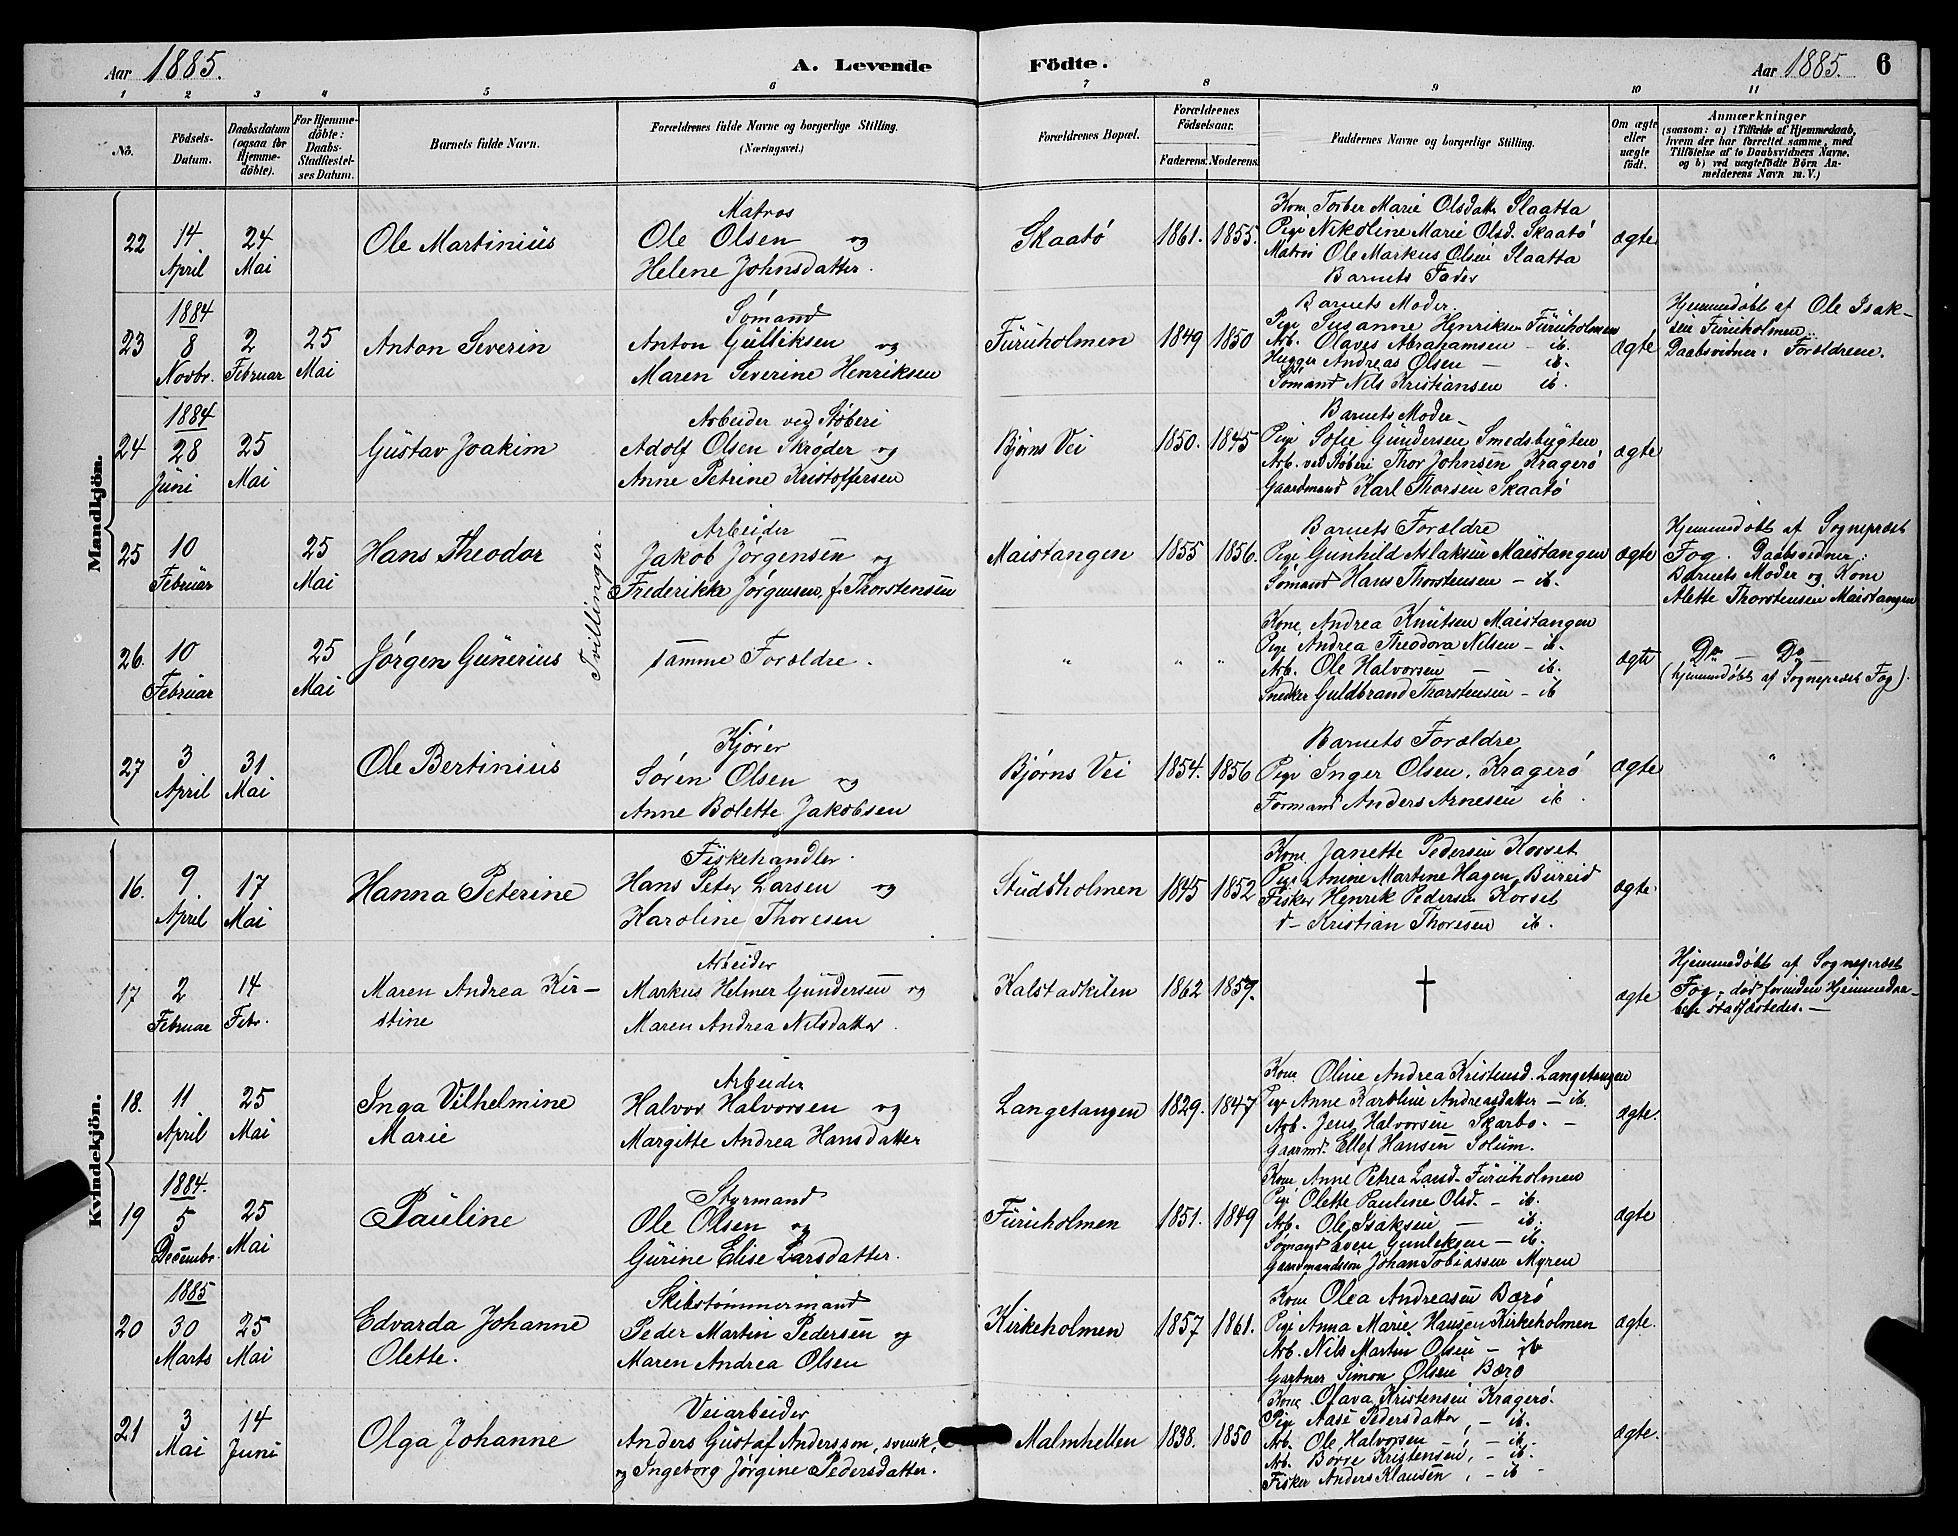 Aar 1885. A. Levende Födte. Aar 1885. 6
1 2 3 4 5 6 7 8 9 10 11
No.
Födsels-
Datum.
Daabsdatum
(ogsaa for
Hjemme-
döbte).
For Hjemme-
döbte:
Daabs-
Stadfæstel-
ses Datum.
Barnets fulde Navn.
Forældrenes fulde Navne og borgerlige Stilling.
(Næringsvei.)
Forældrenes Bopæl.
Forældrenes
Födselsaar.
Faderens. Moderens.
Faddernes Navne og borgerlige Stilling.
Om ægte
eller
uægte
födt.
Anmærkninger
(saasom: a) i Tilfælde af Hjemmedaab,
hvem der har forrettet samme, med
Tilföielse af to Daabsvidners Navne,
og b) ved uægtefödte Börn An-
melderens Navn m. V.)
Mandkjön.
22
14
April
24
Mai
Ole Martinius
Matros
Ole Olsen og
Helene Johnsdatter.
Skaatø
1861. 1855.
Kone Torber Marie Olsdatt. Slaatta
Pige Nikoline Marie Olsd. Skaatø
Matros Ole Markus Olsen Slaatta
Barnets Fader
ægte
23
1884
8
Novbr.
2
Februar
25
Mai
Anton Severin
Sømand
Anton Gulliksen og
Maren Severine Henriksen
Furuholmen
1849 1850
Barnets Moder
Pige Susanne Henriksen Furuholmen
Arb. Olaves Abrahamsen - ib.
Hugger Andreas Olsen - ib.
Sømand Nils Kristiansen ib.
ægte
Hjemmedøbt af Ole Isak-
sen Furuholmen.
Daabsvidner: Forældrene.
24
1884
28
Juni
25
Mai
Gustav Joakim
Arbeider ved Støberi
Adolf Olsen Skrøder og
Anne Petrine Kristoffersen
Bjørns Vei
1850. 1845
Barnets Moder
Pige Sofie Gundersen Smedsbygten
Arb. ved Støberi Thor Johnsen Kragerø
Gaardmand Karl Thorsen Skaatø
ægte
25
10
Februar
25
Mai
Hans Theodor
Tvillinger
Arbeider
Jakob Jørgensen og
Frederikke Jørgensen, f. Thorstensen
Maistangen
1855 1856.
Barnets Forældre
Pige Gunhild Aslaksen Maistangen
Sømand Hans Thorstensen - ib.
ægte
Hjemmedøbt af Sognepræst
Fog. Daabsvidner:
Barnets Moder og Kone
Alette Thorstensen Maistangen
26.
10
Februar
25
Mai
Jørgen Gunerius
samme Forældre.
" " "
Kone Andrea Knutsen Maistangen
Pige Andrea Theodora Nilsen - ib.
Arb. Ole Halvorsen - ib.
Snedker Guldbrand Thorstensen - ib
ægte
Do - Do -
(hjemmedøbt af Sognepræst Fog).
27
3
April
31
Mai
Ole Bertinius
Kjører
Søren Olsen og
Anne Bolette Jakobsen
Bjørns Vei
1854. 1856
Barnets Forældre
Pige Inger Olsen, Kragerø
Formand Anders Arnesen ib.
ægte
"
Kvindekjön.
16.
9
April
17
Mai
Hanna Peterine
Fiskehandler.
Hans Peter Larsen og
Karoline Thoresen
Studsholmen
1845 1852
Kone Janette Pedersen Korset
Pige Anine Martine Hagen, Bureid
Fisker Henrik Pedersen Korset
d- Kristian Thoresen ib.
ægte.
17
2
Februar
14
Febr.
Maren Andrea Kir-
stine
Arbeider
Markus Helmer Gundersen og
Maren Andrea Nilsdatter.
Kalstadkilen
1862 1857.
†
ægte
Hjemmedøbt af Sognepræst
Fog, - død forinden Hjemmedaa-
ben stadfæstedes. -
18.
11
April
25
Mai
Inga Vilhelmine
Marie
Arbeider
Halvor Halvorsen og
Margitte Andrea Hansdatter
Langetangen
1829. 1847
Kone Oline Andrea Kristensd. Langetangen
Pige Anne Karoline Andreasdatter - ib.
Arb. Jens Halvorsen Skarbo. -
Gaarmd. Ellef Hansen Solum.
ægte.
19
1884.
5
Decembr.
25
Mai
Pauline
Styrmand
Ole Olsen og
Gurine Elise Larsdatter.
Furuholmen
1851. 1849
Kone Anne Petrea Larsd. Furuholmen
Pige Olette Pauline Olsd. - ib.
Arb. Ole Isaksen - ib.
Sømand Even Gunleksen - ib.
Gaardmandssøn Johan Tobiassen Myren
ægte
20
1885
30
Marts
25
Mai
Edvarda Johanne
Olette.
Skibstømmermand
Peder Martin Pedersen og
Maren Andrea Olsen
Kirkeholmen
1857 1861.
Kone Olea Andreasen Barø
Pige Anna Marie Hansen Kirkeholmen
Arb. Nils Martin Olsen - ib
Gartner Simon Olsen Barø
ægte.
21
3
Mai
14
Juni
Olga Johanne
Veiarbeider
Anders Gustaf Andersson, svensk,
og Ingeborg Jørgine Pedersdatter.
Malmhellen
1838. 1850
Kone Olava Kristensen Kragerø.
Pige Aase Pedersdatter, - ib.
Arb. Ole Halvorsen - - ib.
Arb. Børre Kristensen, - ib.
Fisker Anders Klausen, - ib -
ægte.